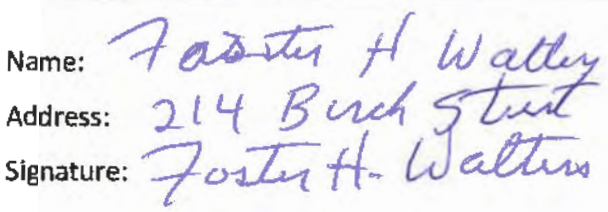 Name: Foster H Walters
Address: 214 Birch Street
Signature: Foster H. Walters